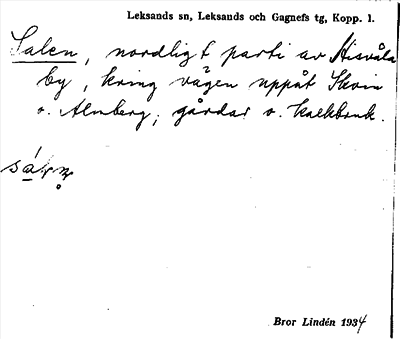 Leksands sn, Leksands och Gagnefs tg, Kopp. l.
Salen, nordligt parti av Hisvåla
by, kring vägen uppåt Skvin
o. Almberg; gårdar o. kalkbruk.
Bror Lindén 1934